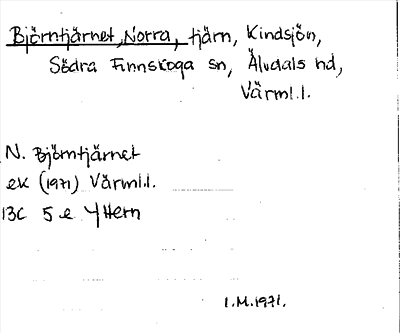 Björntjärnet, Norra, tjärn, Kindsjön,
Södra Finnskoga sn, Älvdals hd,
Värml.l.
N. Björntjärnet
ek (1971) Värml.l.
13C 5 e Ytlern
I.M.1971.